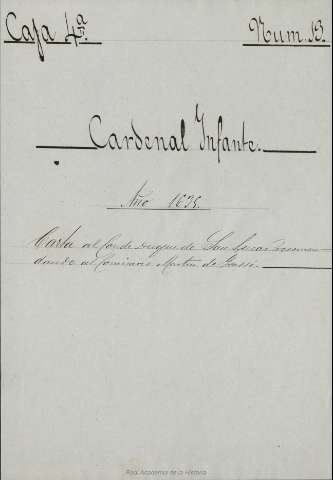 Caja 4ª
Num. 13.
Cardenal Infante.
Año 1635.
Carta al Conde duque de San Lucar recomen-
dando al Comisario Martin de
Real Academia de la Historia